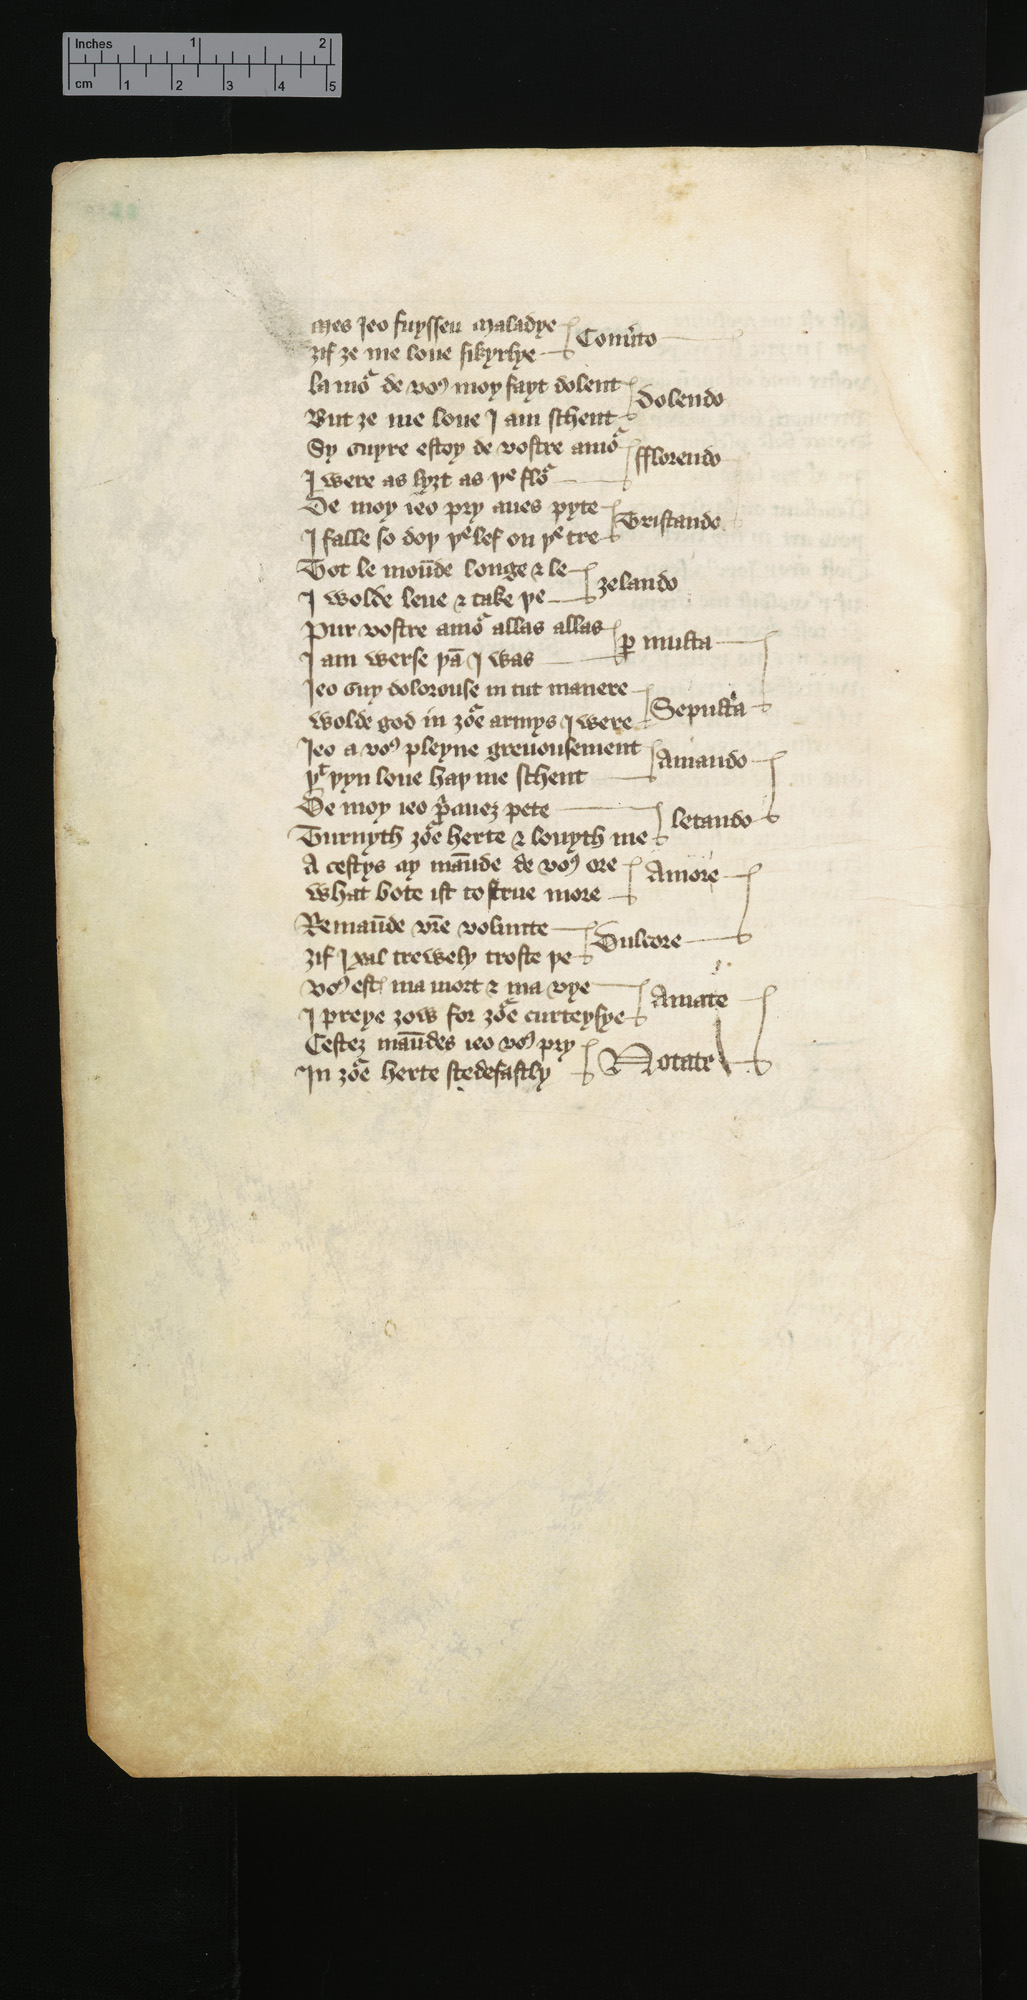 Inches 1 2
cm 1 2 3 4 5
Mes Jeo fuyssen maladye
Ȝif ȝe me loue sikyrlye Conu̾to
La moᷣ de voꝰ moy fayt dolent
But ȝe me loue I am schent Dolendo
Sy guyre estoy de vostre amoᷣ
I were as lyȝt as yᵉ floᷣ fflorendo
De moy ieo pry aues pyte
I falle so doþ yᵉ lef on yᵉ tre Tristando
Tot le moūde longe ⁊ le
I wolde leue ⁊ take þe zelando
Pur vostre amoᷣ allas allas
I am werse þā I was ꝑ multa
Jeo guy dolorouse in tut manere
wolde god in ȝoᷣe armys I were Sepulta
Jeo a voꝰ pleyne greuousement
yᵗ þyn loue haþ me schent Amando
De moy ieo pᷓauez pete
Turnyth ȝoᷣe herte ⁊ louyth me letando
A cestys ay māūde de voꝰ ore
what bote ist to strue more Amore
Remaūde vr̄e volunte
Ȝif I xal trewely troste þe Dulcore
voꝰ est ma mort ⁊ ma vye
I preye ȝow for ȝoᷣe curteysye Amate
Cestez māūdes ieo voꝰ pry
In ȝoᷣe herte stedefastly Notate